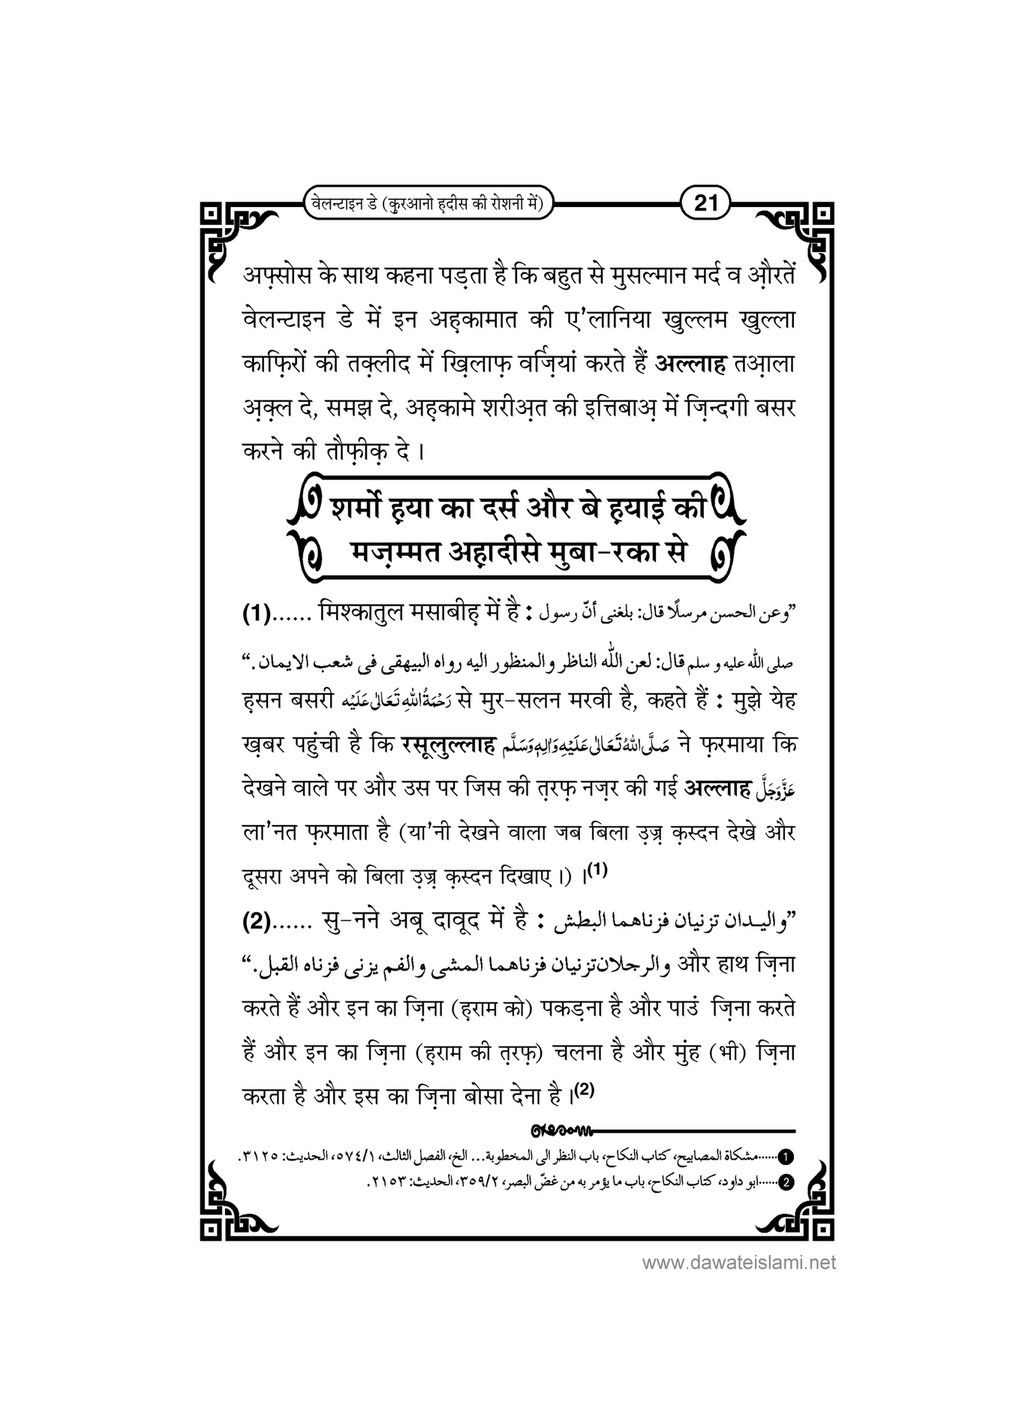 वेलन्टाइन डे (क़ुरआनो ह़दीस की रोशनी में)
21
अफ़्सोस के साथ कहना पड़ता है कि बहुत से मुसल्मान मर्द व औ़रतें
वेलन्टाइन डे में इन अह़कामात की ए'लानिया खुल्लम खुल्ला
काफ़िरों की तक़्लीद में ख़िलाफ़ वर्ज़ियां करते हैं अल्लाह तआ़ला
अ़क़्ल दे, समझ दे, अह़कामे शरीअ़त की इत्तिबाअ़ में ज़िन्दगी बसर
करने की तौफ़ीक़ दे ।
शर्मो ह़या का दर्स और बे ह़याई की
मज़म्मत अह़ादीसे मुबा-रका से
(1)...... मिश्कातुल मसाबीह़ में है : ”وعن الحسن مرسلًا قال: بلغنی أنّ رسول
صلی اللّٰہ علیہ و سلم قال: لعن اللّٰہ الناظر والمنظور الیہ رواہ البیھقی فی شعب الایمان.“
ह़सन बसरी رَحْمَةُ اللّٰهِ تَعَالٰى عَلَيْه से मुर-सलन मरवी है, कहते हैं : मुझे येह
ख़बर पहुंची है कि रसूलुल्लाह صَلَّى اللّٰهُ تَعَالٰى عَلَيْهِ وَاٰلِهٖ وَسَلَّم ने फ़रमाया कि
देखने वाले पर और उस पर जिस की त़रफ़ नज़र की गई अल्लाह عَزَّوَجَلَّ
ला'नत फ़रमाता है (या'नी देखने वाला जब बिला उ़ज़्र क़स्दन देखे और
दूसरा अपने को बिला उ़ज़्र क़स्दन दिखाए ।) ।(1)
(2)...... सु-नने अबू दावूद में है : ”والیدان تزنیان فزناھما البطش
والرجلان تزنیان فزناھما المشی والفم یزنی فزناہ القبل.“ और हाथ ज़िना
करते हैं और इन का ज़िना (ह़राम को) पकड़ना है और पाउं ज़िना करते
हैं और इन का ज़िना (ह़राम की त़रफ़) चलना है और मुंह (भी) ज़िना
करता है और इस का ज़िना बोसा देना है ।(2)
1......مشکاة المصابیح، کتاب النکاح، باب النظر الی المخطوبة... الخ، الفصل الثالث، ۱/۵۷٤، الحدیث: ۳۱۲۵.
2......ابو داود، کتاب النکاح، باب ما یؤمر به من غضّ البصر، ۲/۳۵۹، الحدیث: ۲۱۵۳.
www.dawateislami.net